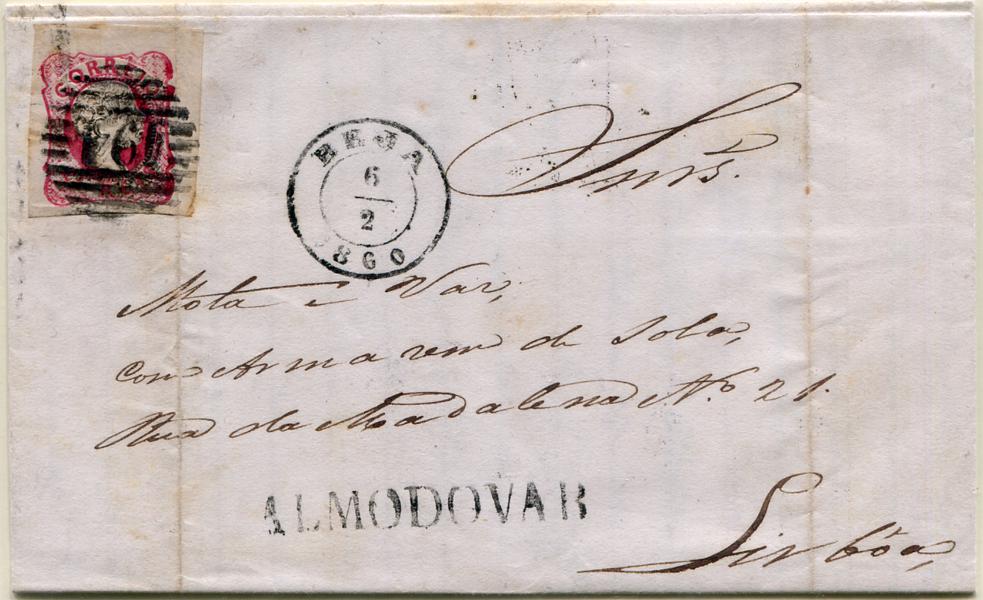 CORREIO
BEJA
6
2
1860
Snrs.
Mota e Var,
com Armazem de Sola,
Rua da Madalena No. 21.
ALMODOVAR
Lisbôa,